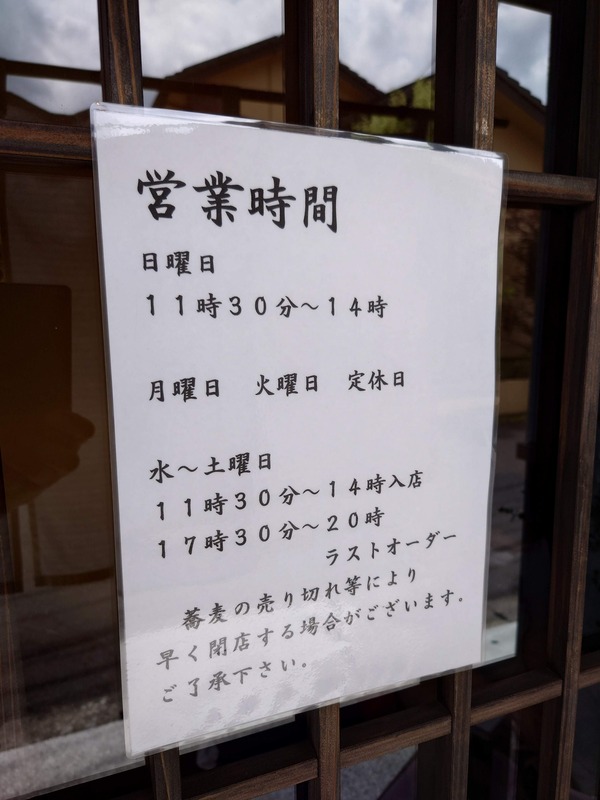 営業時間
日曜日
１１時３０分～１４時
月曜日　火曜日　定休日
水～土曜日
１１時３０分～１４時入店
１７時３０分～２０時
ラストオーダー
蕎麦の売り切れ等により
早く閉店する場合がございます。
ご了承下さい。